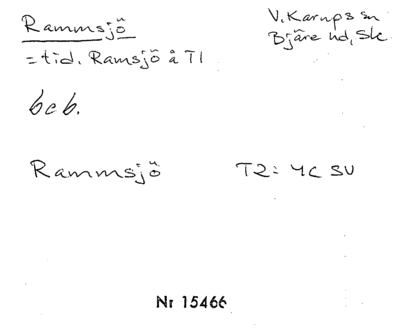 Rammsjö
V. Karups sn
Bjäre hd, Sk
= tid. Ramsjö å T1
beb.
Rammsjö T2: 4C SV
Nr 15466